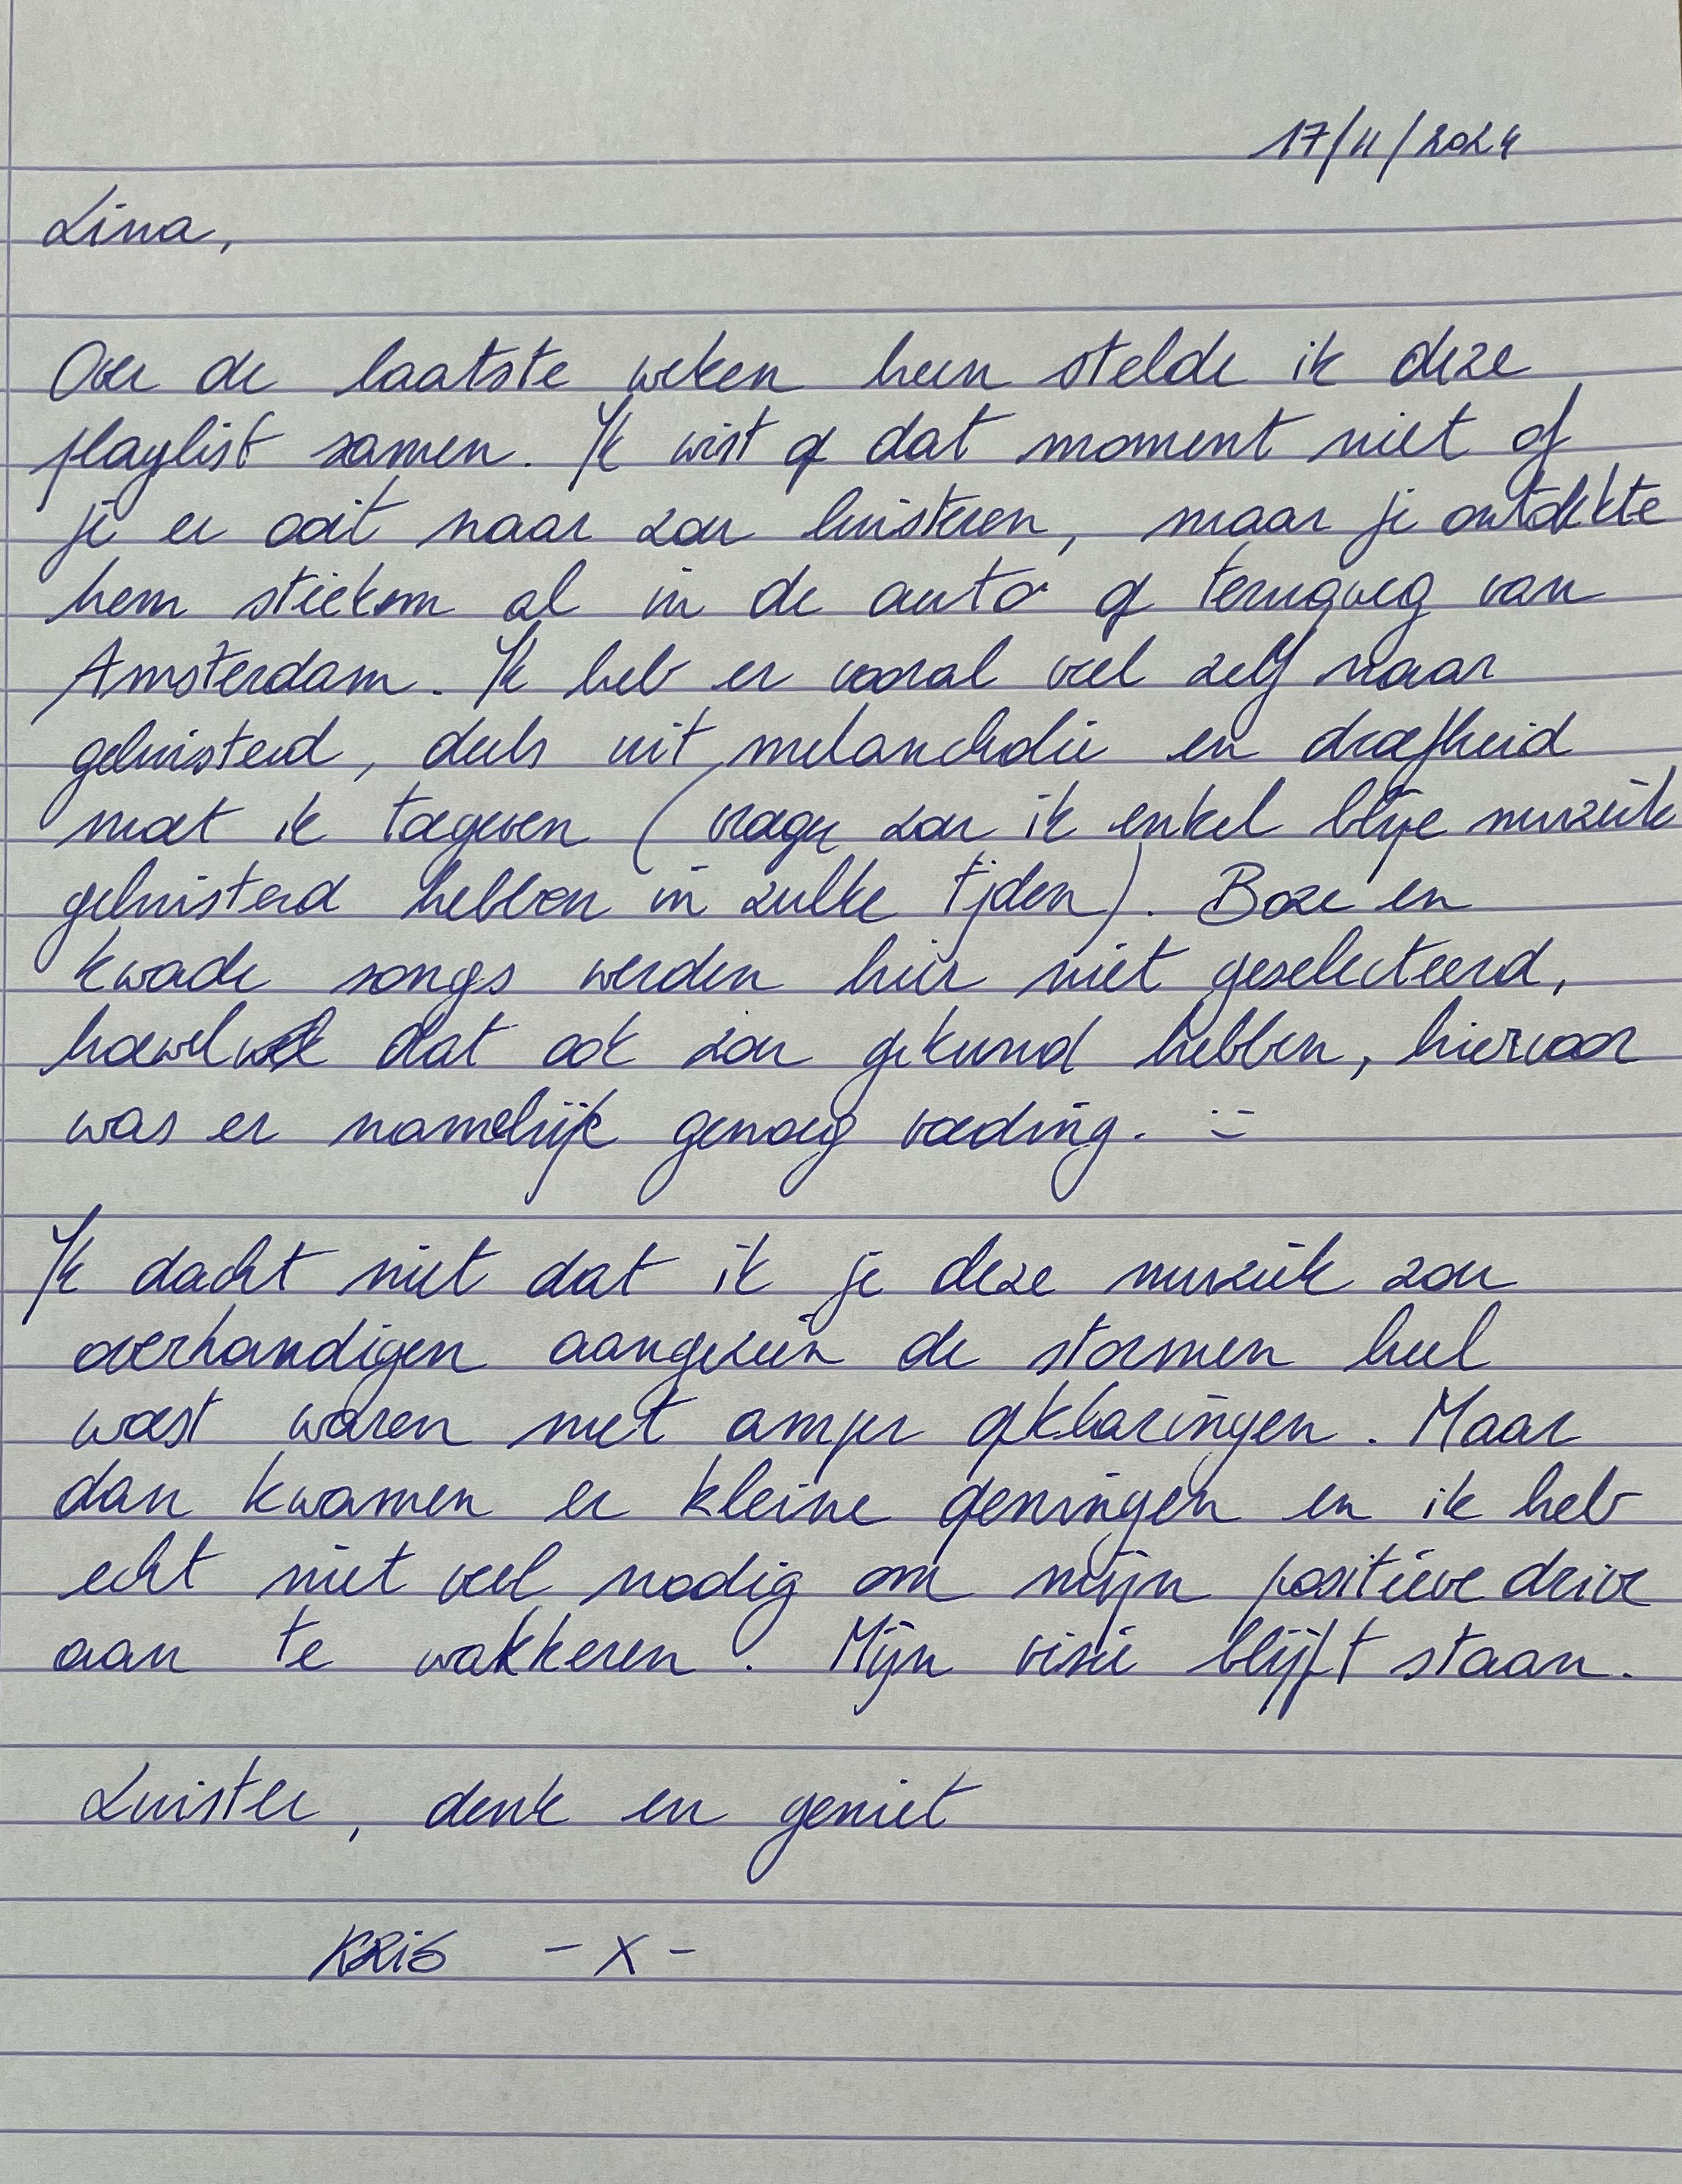 17/11/2024
Lina,
Over de laatste weken heen stelde ik deze
playlist samen. Ik wist op dat moment niet of
je er ooit naar zou luisteren, maar je ontdekte
hem stiekem al in de auto op terugweg van
Amsterdam. Ik heb er vooral veel zelf naar
geluisterd, deels uit melancholie en droefheid
moet ik toegeven (vroeger zou ik enkel blije muziek
geluisterd hebben in zulke tijden). Boze en
kwade songs werden hier niet geselecteerd,
hoewel dat ook zou gekund hebben, hiervoor
was er namelijk genoeg voeding. :-)
Ik dacht niet dat ik je deze muziek zou
overhandigen aangezien de stormen heel
woest waren met amper opklaringen. Maar
dan kwamen er kleine openingen en ik heb
echt niet veel nodig om mijn positieve drive
aan te wakkeren. Mijn visie blijft staan.
Luister, denk en geniet
KRIS - X -